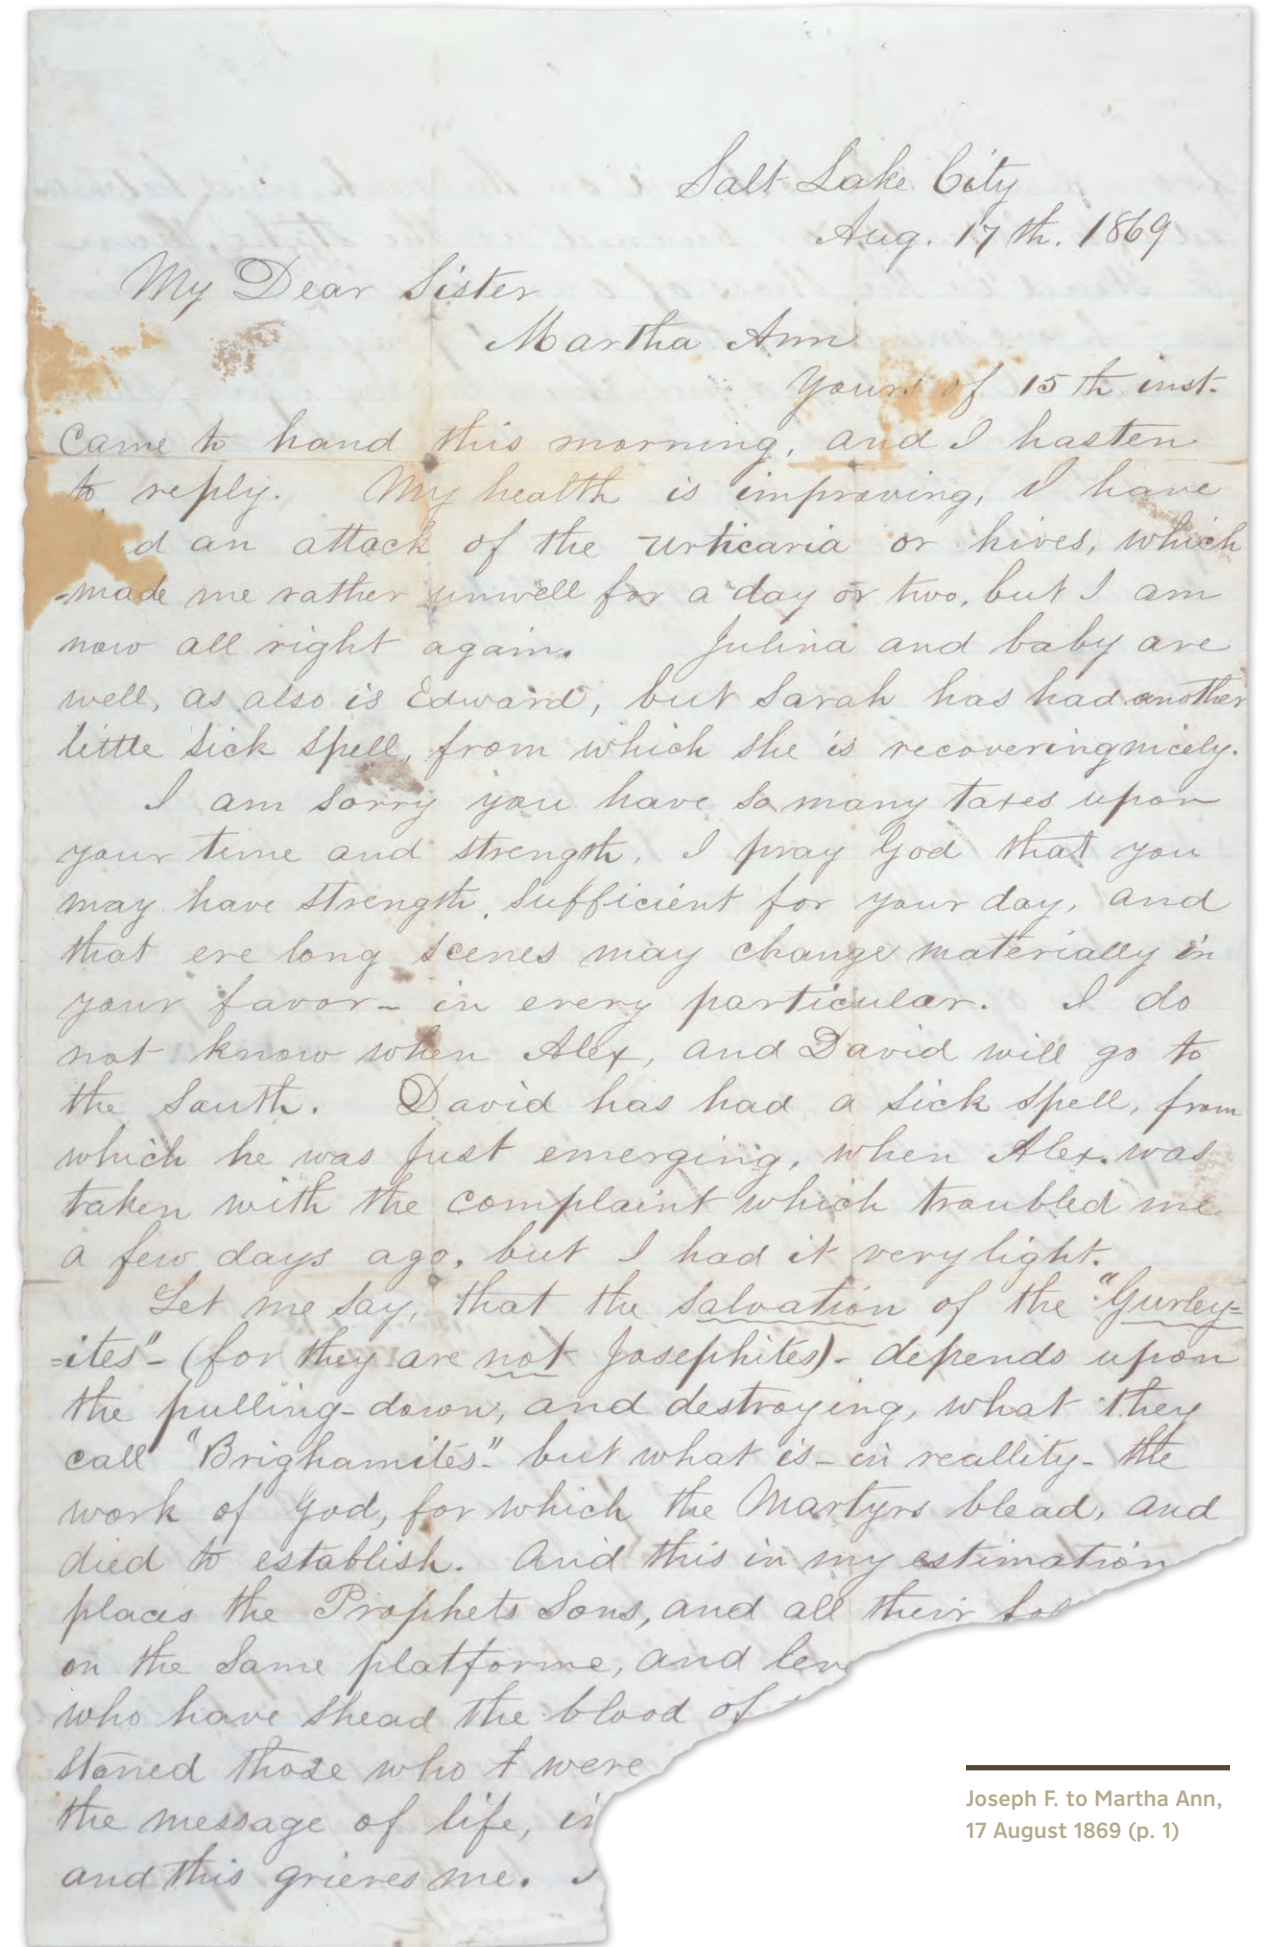 Salt Lake City
Aug. 17th. 1869
My Dear Sister
Martha Ann
Yours of 15th inst.
came to hand this morning, and I hasten
to reply. My health is improving, I have
d an attack of the Urticaria or hives, which
-made me rather unwell for a day or two, but I am
now all right again. Julina and baby are
well, as also is Edward, but Sarah has had another
little sick spell, from which she is recovering nicely.
I am sorry you have so many taxes upon
your time and strength, I pray God that you
may have strength, sufficient for your day, and
that ere long scenes may change materially in
your favor – in every particular. I do
not know when Alex, and David will go to
the South. David has had a sick spell, from
which he was just emerging, when Alex. was
taken with the complaint which troubled me
a few days ago, but I had it very light.
Let me say, that the salvation of the "Gurley=
=ites" – (for they are not Josephites) – depends upon
the pulling-down, and destroying, what they
call "Brighamites". but what is – in reallity – the
work of God, for which the Martyrs blead, and
died to establish. And this in my estimation
places the Prophets Sons, and all their fol
on the same platforme, and lev
who have shead the blood of
stoned those who were
the message of life, in
and this grieves me. I
Joseph F. to Martha Ann,
17 August 1869 (p. 1)